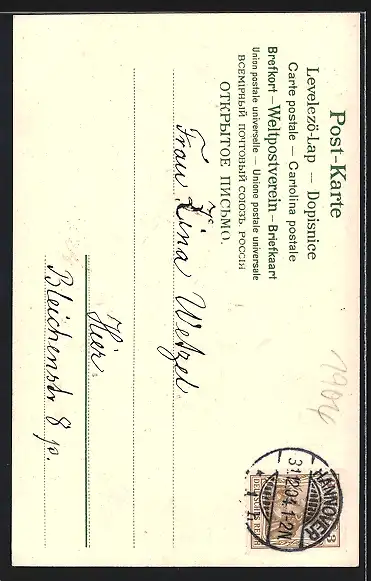 Post-Karte
Levelezö-Lap — Dopisnice
Carte postale — Cartolina postale
Brefkort — Weltpostverein — Briefkaart
Union postale universelle — Unione postale universale
ВСЕМІРНЫЙ ПОЧТОВЫЙ СОЮЗЪ. РОССІЯ
ОТКРЫТОЕ ПИСЬМО.
1904
HANNOVER
31.12.04. 1-2N
3
Frau Lina Wetzel
Hier.
Bleichenstr 8 p.